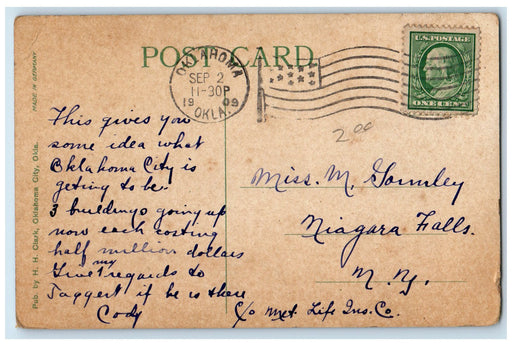 POST CARD.
MADE IN GERMANY
Pub. by H. H. Clark, Oklahoma City, Okla.
OKLAHOMA
SEP 2
11-30P
1909
OKLA.
U.S. POSTAGE
ONE CENT
2.00
This gives you
some idea what
Oklahoma City is
getting to be.
3 buildings going up
now each costing
half million dollars
Give my regards to
Taggert if he is there
Cody
Miss. M. Gormley
Niagara Falls.
N.Y.
c/o Met. Life Ins. Co.